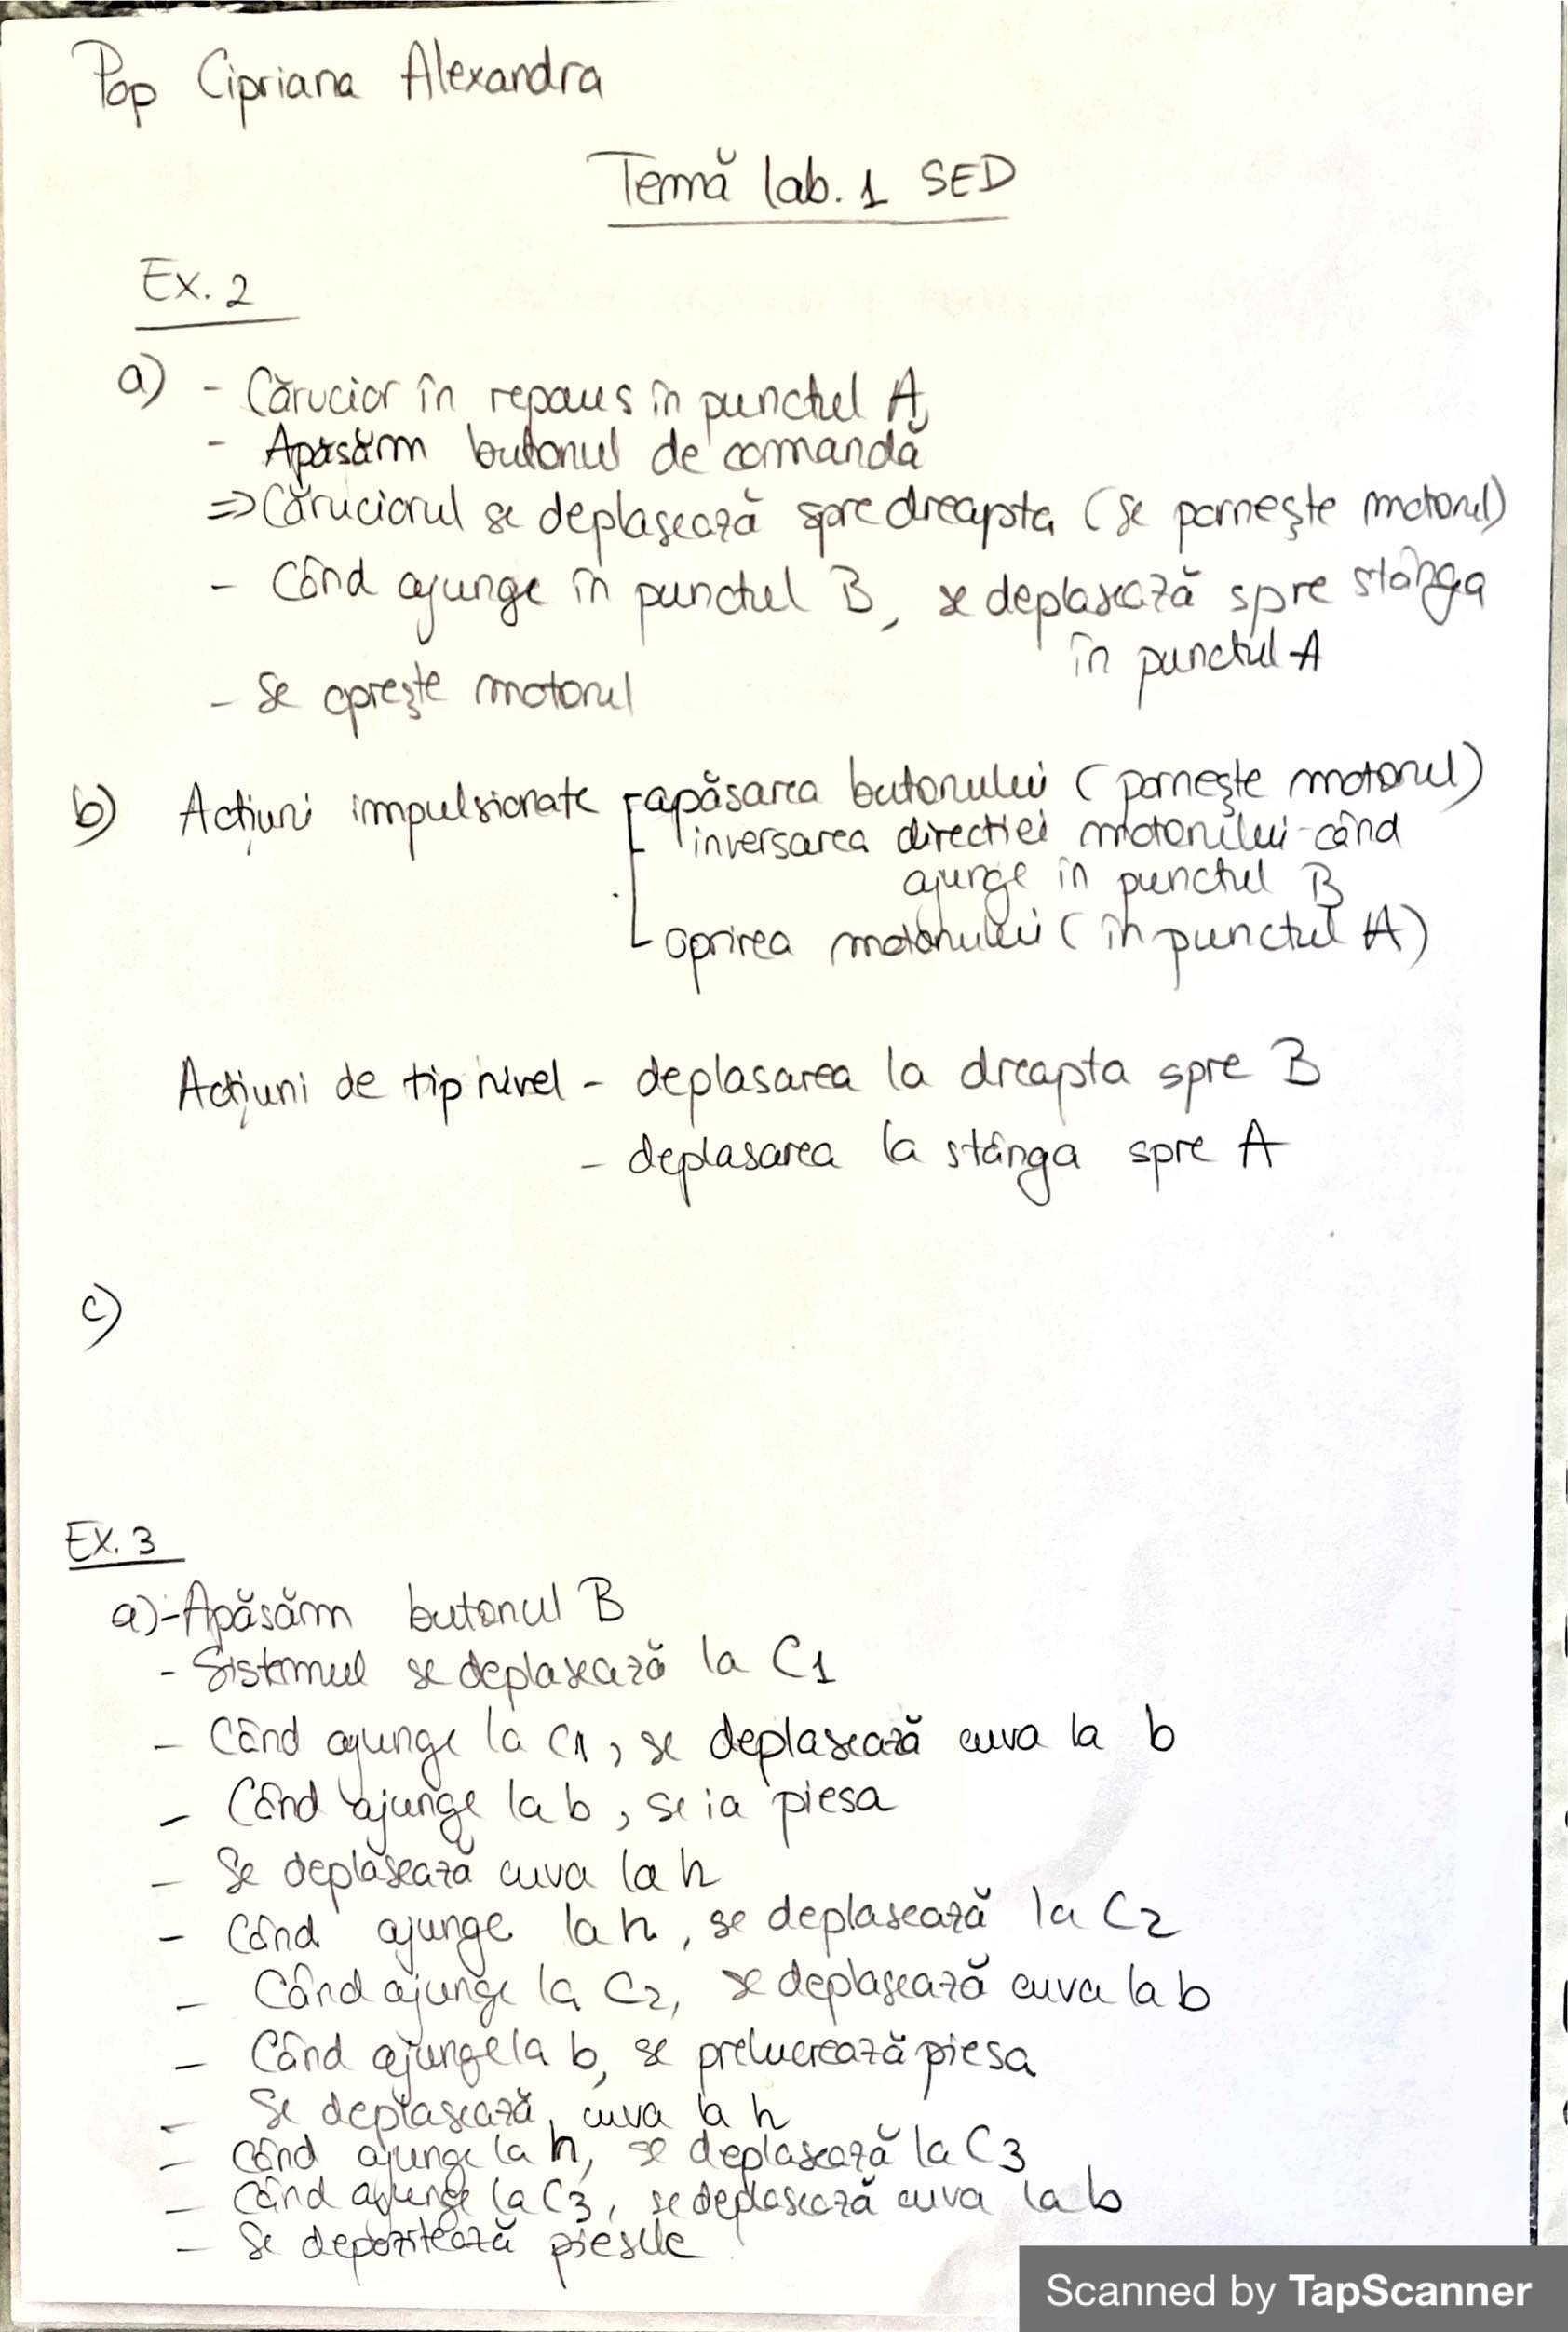 Pop Cipriana Alexandra
Temă lab. 1 SED
Ex. 2
a) - Cărucior în repaus în punctul A
- Apăsăm butonul de comandă
=> Căruciorul se deplasează spre dreapta (se pornește motorul)
- Când ajunge în punctul B, se deplasează spre stânga
în punctul A
- Se oprește motorul
b) Acțiuni impulsionate - apăsarea butonului (pornește motorul)
inversarea directiei motorului când
ajunge în punctul B
oprirea motorului (în punctul A)
Acțiuni de tip nivel - deplasarea la dreapta spre B
- deplasarea la stânga spre A
c)
Ex. 3
a) - Apăsăm butonul B
- Sistemul se deplasează la C1
- Când ajunge la C1, se deplasează cuva la b
- Când ajunge la b, se ia piesa
- Se deplasează cuva la h
- Când ajunge la h, se deplasează la C2
- Când ajunge la C2, se deplasează cuva la b
- Când ajunge la b, se prelucrează piesa
- Se deplasează cuva la h
- Când ajunge la h, se deplasează la C3
- Când ajunge la C3, se deplasează cuva la b
- Se depozitează piesele
Scanned by TapScanner